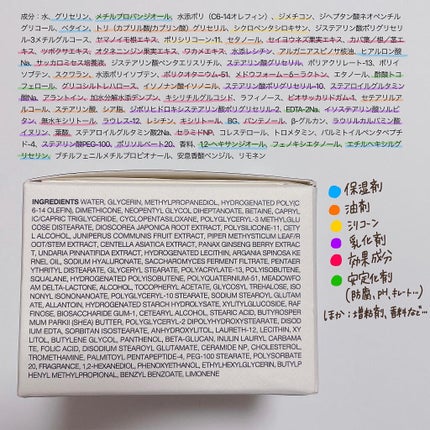 成分:水、グリセリン、メチルプロパンジオール、水添ポリ(C6-14オレフィン)、ジメチコン、ジヘプタン酸ネオペンチル
グリコール、ベタイン、トリ(カプリル酸/カプリン酸)グリセリル、シクロペンタシロキサン、ジステアリン酸ポリグリセリ
ル-3メチルグルコース、カマノイモ根エキス、ポリシリコーン-11、セタノール、セイヨウネズ果実エキス、
ツボクサエキス、オタネニンジン果実エキス、ワカメエキス、水添レシチン、アルガニアスピノサ核油、ヒアルロン酸
Na、サッカロミセス培養液、ジステアリン酸ペンタエリスリチル、ステアリン酸グリセリル、ポリアクリレート-13、ポリイ
ソブテン、スクワラン、水添ポリイソブテン、ポリクオタニウム-51、メドウフォーム-δ-ラクトン、エタノール、酢酸トコ
フェロール、グリコシルトレハロース、イソノナン酸イソノニル、ステアリン酸ポリグリセリル-10、ステアロイルグルタミン
酸Na、アラントイン、加水分解水添デンプン、キシリチルグルコシド、ラフィノース、ビオサッカリドガム-1、セテアリルア
ルコール、ステアリン酸、シア脂、ジポリヒドロキシステアリン酸ポリグリセリル-2、EDTA-2Na、イソステアリン酸ソルビ
タン、無水キシリトール、ラウレス-12、レシチン、キシリトール、BG、パンテノール、β-グルカン、ラウリルカルバミン酸
イヌリン、葉酸、ステアロイルグルタミン酸2Na、セラミドNP、コレステロール、トロメタミン、パルミトイルペンタペプチ
ド-4、ステアリン酸PEG-100、ポリソルベート20、香料、1,2-ヘキサンジオール、フェノキシエタノール、エチルヘキシルグ
リセリン、ブチルフェニルメチルプロピオナール、安息香酸ベンジル、リモネン
INGREDIENTS WATER, GLYCERIN, METHYLPROPANEDIOL, HYDROGENATED POLY(C
6-14 OLEFIN), DIMETHICONE, NEOPENTYL GLYCOL DIHEPTANOATE, BETAINE, CAPRYL
IC/CAPRIC TRIGLYCERIDE, CYCLOPENTASILOXANE, POLYGLYCERYL-3 METHYLGLU
COSE DISTEARATE, DIOSCOREA JAPONICA ROOT EXTRACT, POLYSILICONE-11, CET
YL ALCOHOL, JUNIPERUS COMMUNIS FRUIT EXTRACT, PIPER METHYSTICUM LEAF
/ROOT/STEM EXTRACT, CENTELLA ASIATICA EXTRACT, PANAX GINSENG BERRY EXTRAC
T, UNDARIA PINNATIFIDA EXTRACT, HYDROGENATED LECITHIN, ARGANIA SPINOSA KE
RNEL OIL, SODIUM HYALURONATE, SACCHAROMYCES FERMENT FILTRATE, PENTAER
YTHRITYL DISTEARATE, GLYCERYL STEARATE, POLYACRYLATE-13, POLYISOBUTENE,
SQUALANE, HYDROGENATED POLYISOBUTENE, POLYQUATERNIUM-51, MEADOWFO
AM DELTA-LACTONE, ALCOHOL, TOCOPHERYL ACETATE, GLYCOSYL TREHALOSE, ISO
NONYL ISONONANOATE, POLYGLYCERYL-10 STEARATE, SODIUM STEAROYL GLUTAM
ATE, ALLANTOIN, HYDROGENATED STARCH HYDROLYSATE, XYLITYLGLUCOSIDE, RAF
FINOSE, BIOSACCHARIDE GUM-1, CETEARYL ALCOHOL, STEARIC ACID, BUTYROSPER
MUM PARKII (SHEA) BUTTER, POLYGLYCERYL-2 DIPOLYHYDROXYSTEARATE, DISODI
UM EDTA, SORBITAN ISOSTEARATE, ANHYDROXYLITOL, LAURETH-12, LECITHIN, XY
LITOL, BUTYLENE GLYCOL, PANTHENOL, BETA-GLUCAN, INULIN LAURYL CARBAMA
TE, FOLIC ACID, DISODIUM STEAROYL GLUTAMATE, CERAMIDE NP, CHOLESTEROL,
TROMETHAMINE, PALMITOYL PENTAPEPTIDE-4, PEG-100 STEARATE, POLYSORBATE
20, FRAGRANCE, 1,2-HEXANEDIOL, PHENOXYETHANOL, ETHYLHEXYLGLYCERIN, BUTYLP
HENYL METHYLPROPIONAL, BENZYL BENZOATE, LIMONENE
保湿剤
油剤
シリコーン
乳化剤
効果成分
安定化剤
(防腐、pH、キレート…)
ほか:増粘剤、香料など…